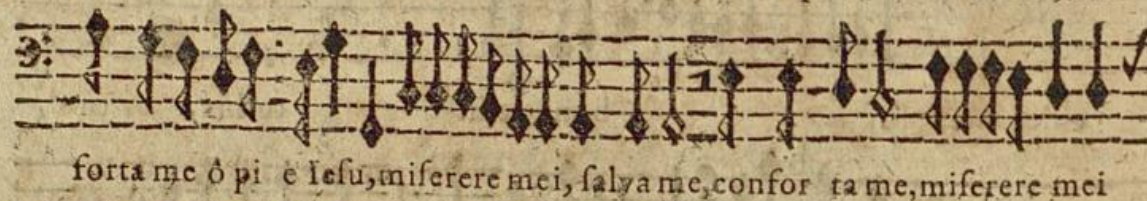 forta me ô pi e Iesu, miserere mei, salva me, confor ta me, miserere mei